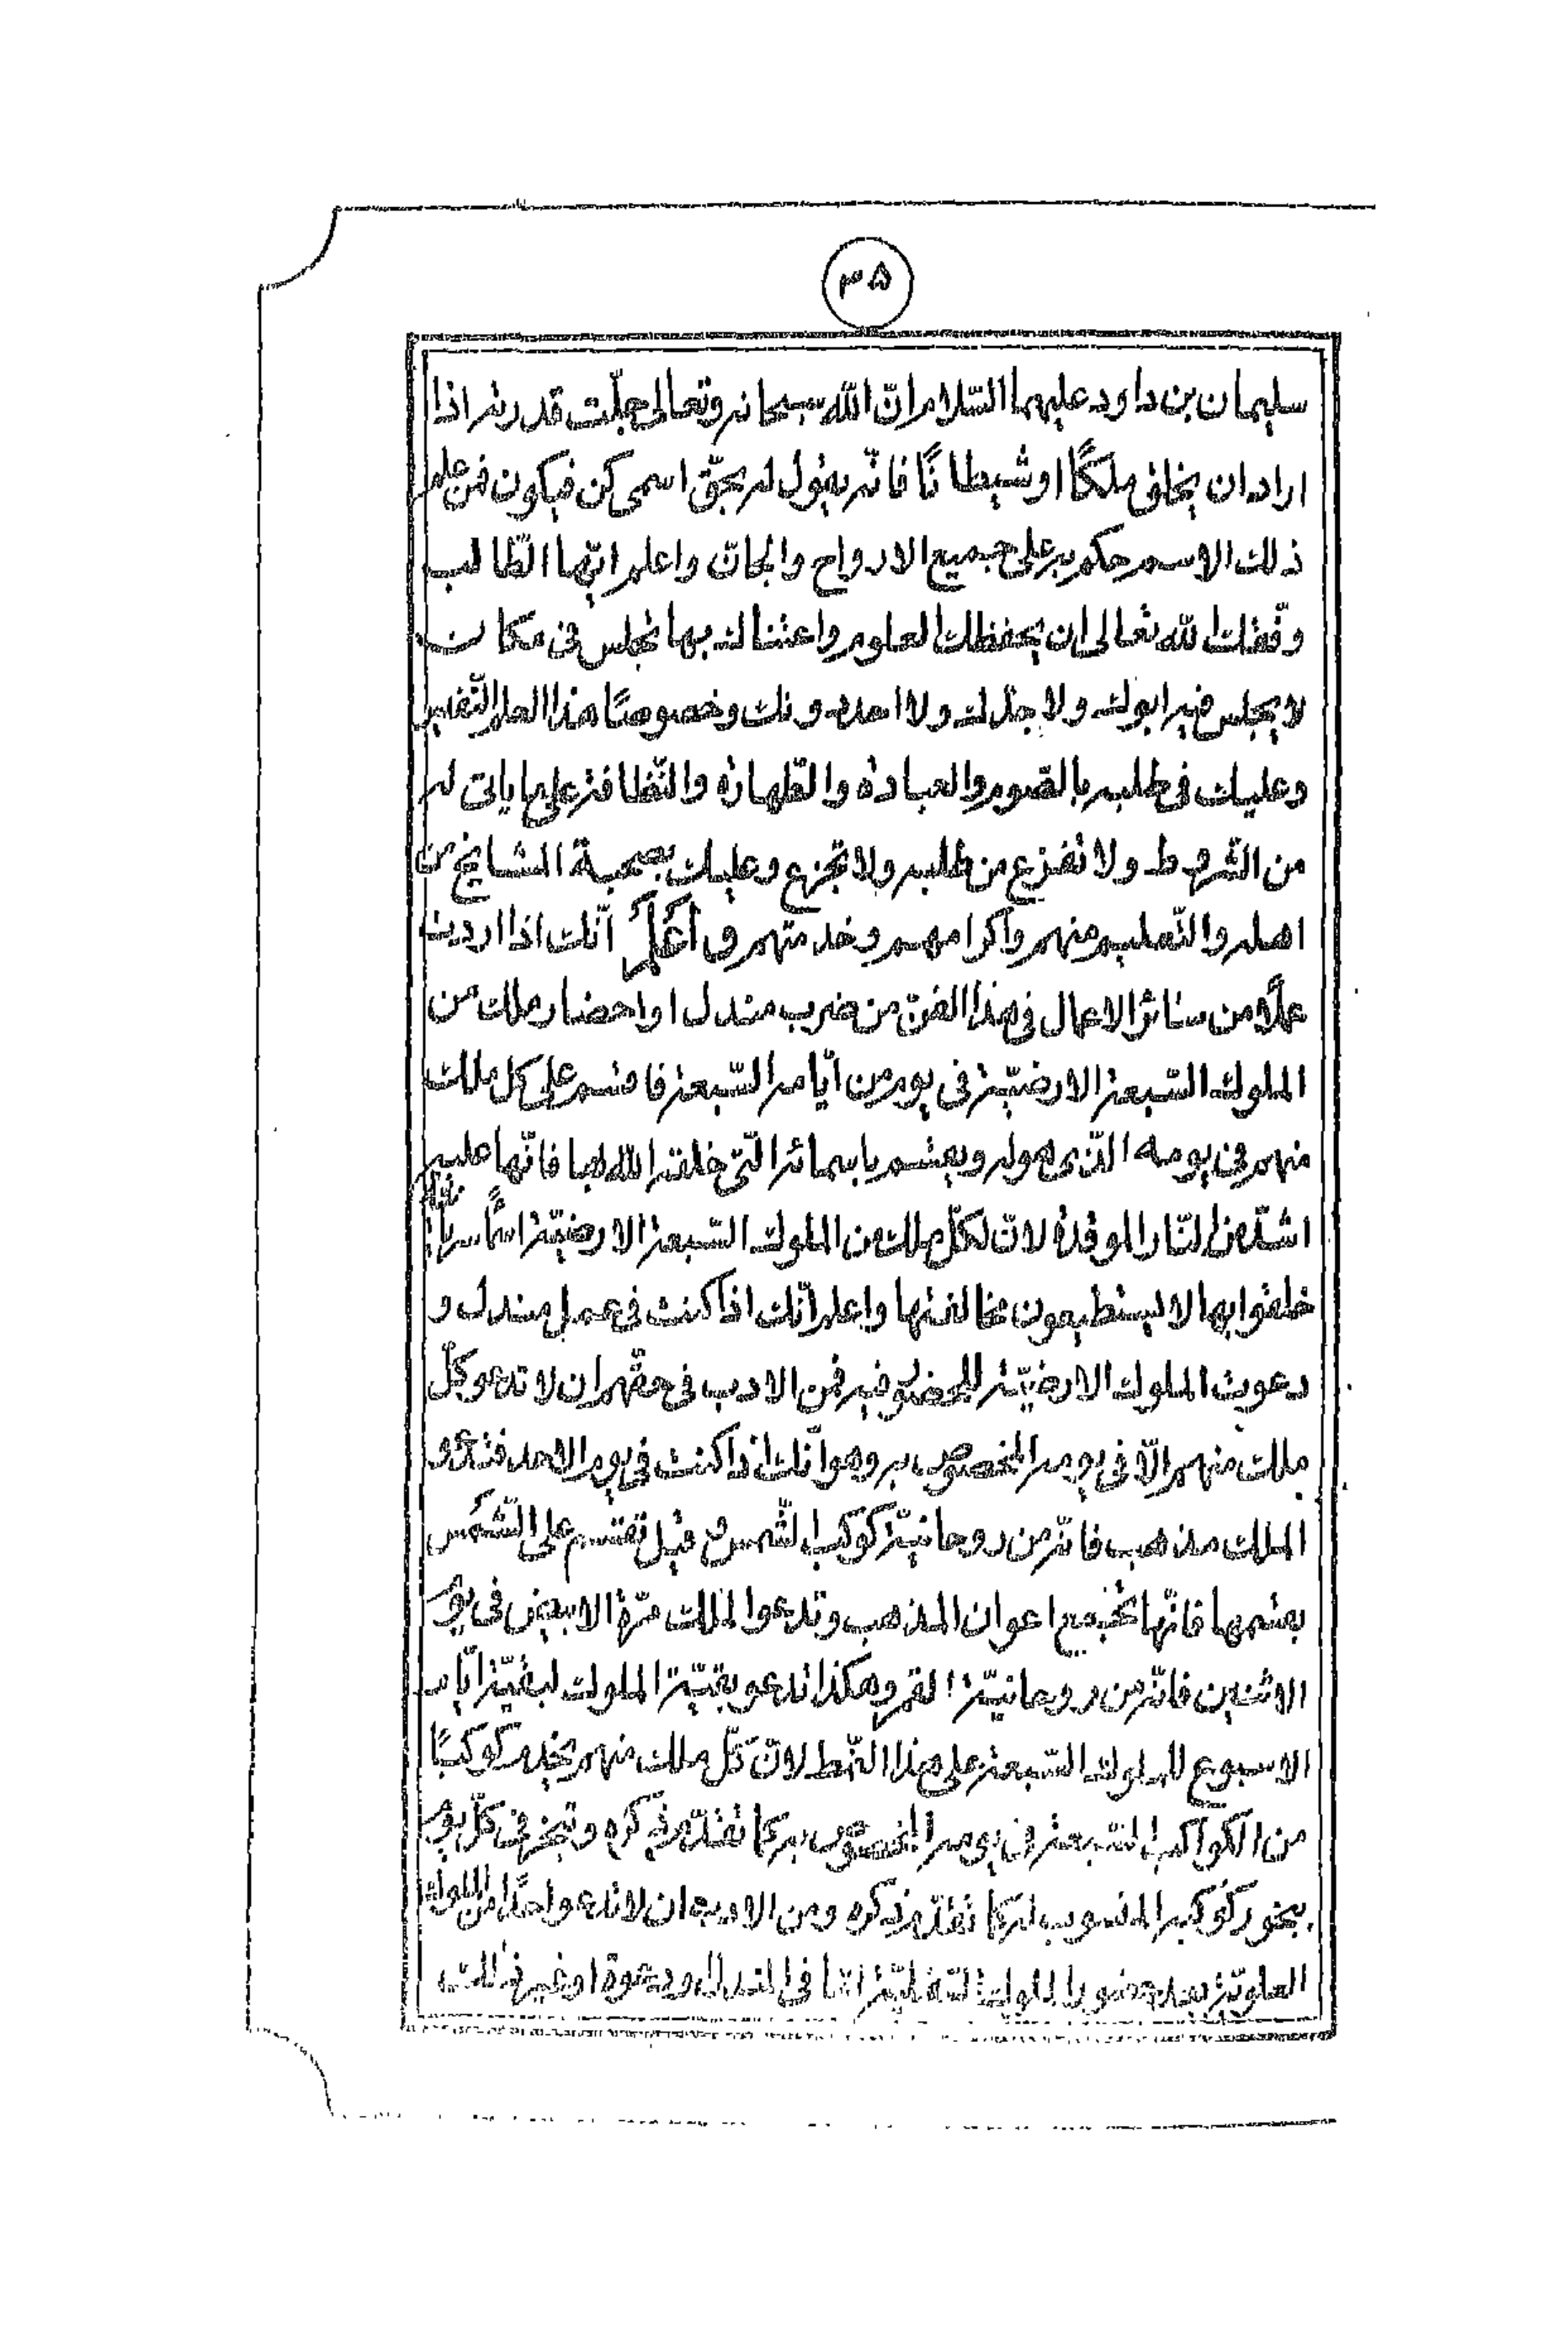 ٣٥
سليمان بن داود عليهما السّلام انّ اللّه سبحانه وتعالى جلّت قدرته اذا
اراد ان يخلق ملكًا او شيطانًا فانّه يقول له بحقّ اسمى كن فيكون فمن علم
ذلك الاسم حكم به على جميع الارواح والجانّ واعلم ايّها الطّالب
وفّقك اللّه تعالى ان بحفظك العلوم واعتناك بها تجلس فى مكان
لا يجلس فيه ابوك ولا جدّك ولا احد دونك وخصوصًا هذا العلم النّفيس
وعليك فى طلبه بالصّوم والعبادة والطّهارة والنّظافة على ما ياتى له
من الشّروط ولا تفزع من طلبه ولا تجزع وعليك بصحبة المشايخ من
اهله والتّعليم منهم واكرامهم وخدمتهم و أَعْلَمْ انّك اذا اردت
عملًا من سائر الاعمال فى هذا الفنّ من ضرب مندل او احضار ملك من
الملوك السّبعة الارضيّة فى يوم من ايّامه السّبعة فاقسم على كل ملك
منهم فى يومه الّذى هو له وبقسم باسمائه الّتى خلقه اللّه بها فانّها عليه
اشدّ من النّار الموقدة لانّ لكلّ ملك من الملوك السّبعة الارضيّة اسمًا سريانيًّا
خلقوا بها لا يستطيعون مخالفتها واعلم انّك اذا كنت فى عمل مندل و
دعوت الملوك الارضيّة للحضور فيه فمن الادب فى حقّهم ان لا تدعو كلّ
ملك منهم الّا فى يومه المخصوص به وهو انّك اذا كنت فى يوم الاحد فتدعو
الملك مذهب فانّه من روحانيّة كوكب الشّمس و قبل تقسم على الشّمس
بقسمها فانّها تجمع اعوان المذهب وتدعوا الملك مرّة الابيض فى يوم
الاثنين فانّه من روحانيّة القمر وهكذا تدعو بقيّة الملوك لبقيّة ايّام
الاسبوع للملوك السّبعة على هذا النّمط لانّ كلّ ملك منهم يخدم كوكبًا
من الكواكب السّبعة فى يومه المخصوص به كما تقدّم ذكره وتبخر فى كلّ يوم
ببخور كوكبه المنسوب له كما تقدّم ذكره ومن الادب ان لا تدعو احدًا من الملوك
العلويّة بعد حضور الملوك السّفليّة امّا فى المندل ودعوة او غير ذلك